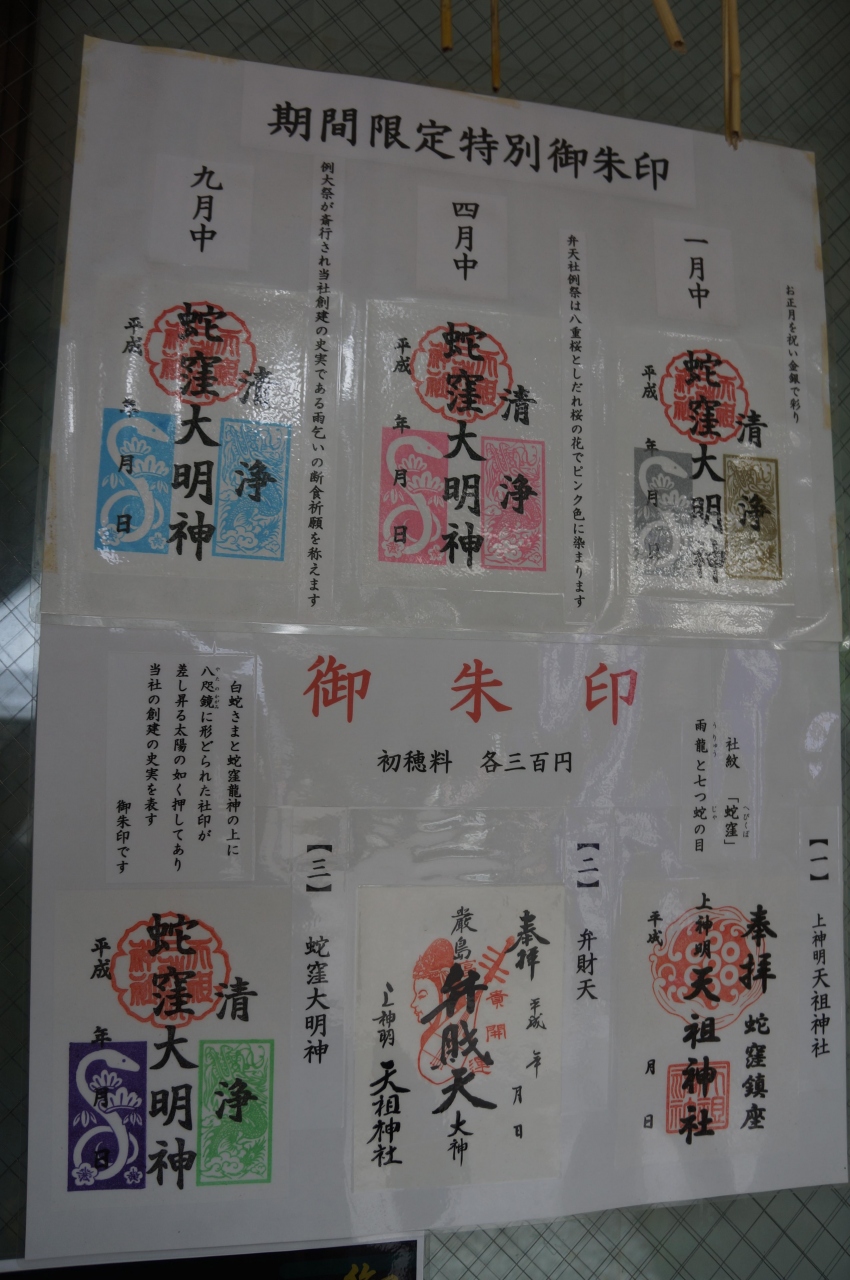 期間限定特別御朱印
一月中
お正月を祝い金銀で彩り
清
浄
蛇窪大明神
平成 年 月 日
四月中
弁天社例祭は八重桜としだれ桜の花でピンク色に染まります
清
浄
蛇窪大明神
平成 年 月 日
九月中
例大祭が斎行され当社創建の史実である雨乞いの断食祈願を称えます
清
浄
蛇窪大明神
平成 年 月 日
御朱印
初穂料 各三百円
社紋 「蛇窪」
へびくぼ
雨龍と七つ蛇の目
うりゅう
じゃ
白蛇さまと蛇窪龍神の上に
八咫鏡に形どられた社印が
やたのかがみ
差し昇る太陽の如く押してあり
当社の創建の史実を表す
御朱印です
【一】 上神明天祖神社
奉拝 蛇窪鎮座
上神明天祖神社
平成 月 日
【二】 弁財天
奉拝 平成 年 月 日
厳島
弁財天大神
上神明天祖神社
【三】 蛇窪大明神
清
浄
蛇窪大明神
平成 年 月 日